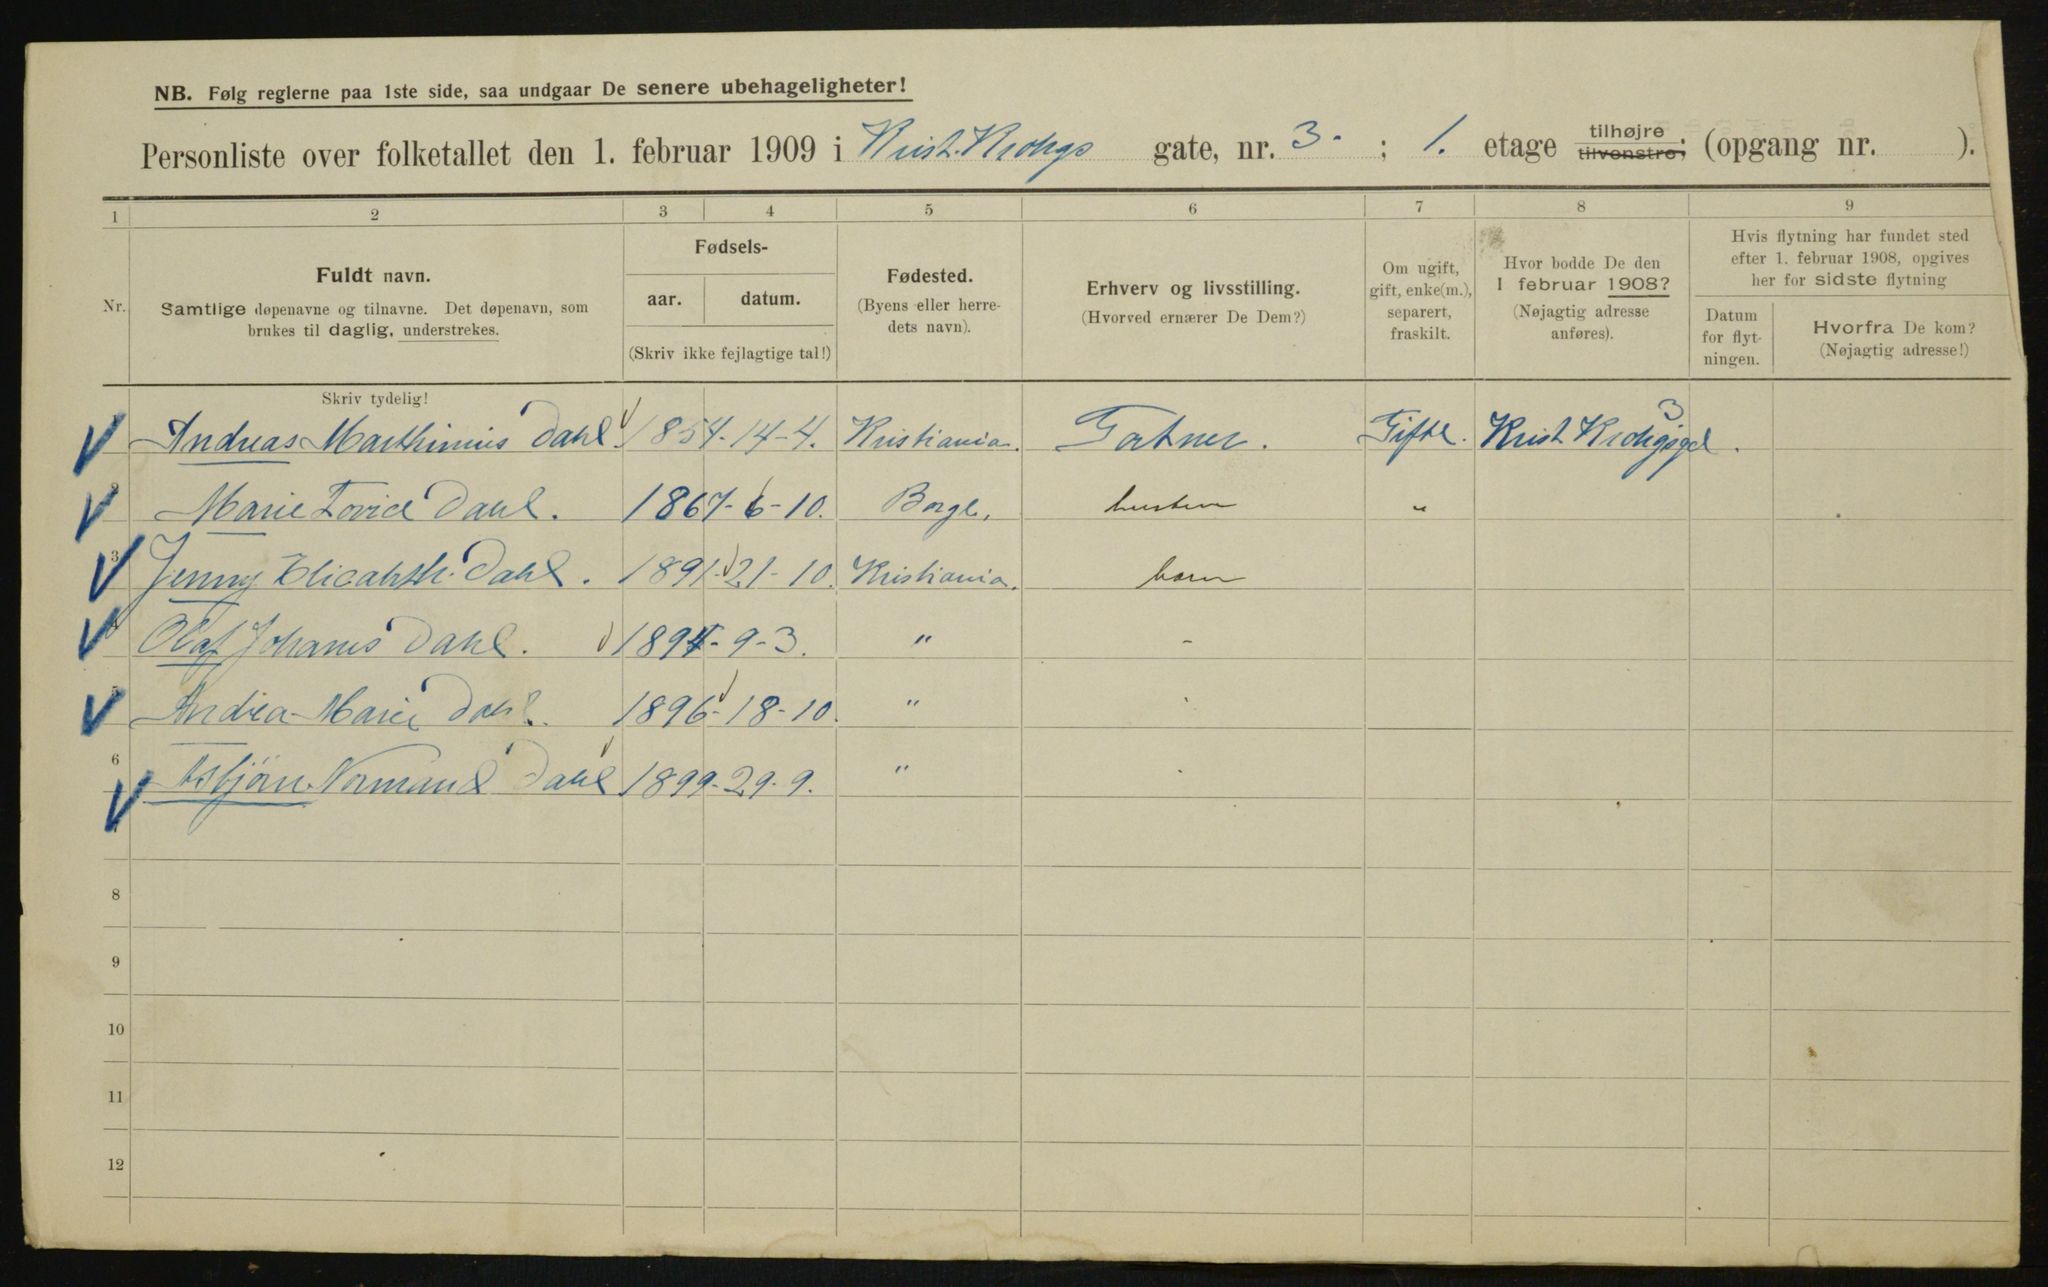 NB. Følg reglerne paa 1ste side, saa undgaar De senere ubehageligheter!
Personliste over folketallet den 1. februar 1909 i Krist. Krohgs gate, nr. 3 - ; 1. etage tilhøjre tilvenstre; (opgang nr. ).
1 2 3 4 5 6 7 8 9
Nr.
Fuldt navn.
Samtlige døpenavne og tilnavne. Det døpenavn, som
brukes til daglig, understrekes.
Fødsels-
aar. datum.
(Skriv ikke fejlagtige tal!)
Fødested.
(Byens eller herre-
dets navn).
Erhverv og livsstilling.
(Hvorved ernærer De Dem?)
Om ugift,
gift, enke(m.),
separert,
fraskilt.
Hvor bodde De den
1 februar 1908?
(Nøjagtig adresse
anføres).
Hvis flytning har fundet sted
efter 1. februar 1908, opgives
her for sidste flytning
Datum
for flyt-
ningen.
Hvorfra De kom?
(Nøjagtig adresse!)
Skriv tydelig!
Andreas Marthinius Dahl 1854 - 14 - 4. Kristiania. Gartner. Gifte. Krist Krohgsgd 3.
2 Marie Dahl. 1867 - 6 - 10. Borge. hustru "
3 Jenny Elicabeth. Dahl. 1891 - 21 - 10. Kristiania. barn
4 Olaf Johanes Dahl. 1894 - 9 - 3. " -
5 Andrea Marie Dahl. 1896 - 18 - 10. "
6 Asbjørn Normand Dahl 1899 - 29 - 9. "
7
8
9
10
11
12